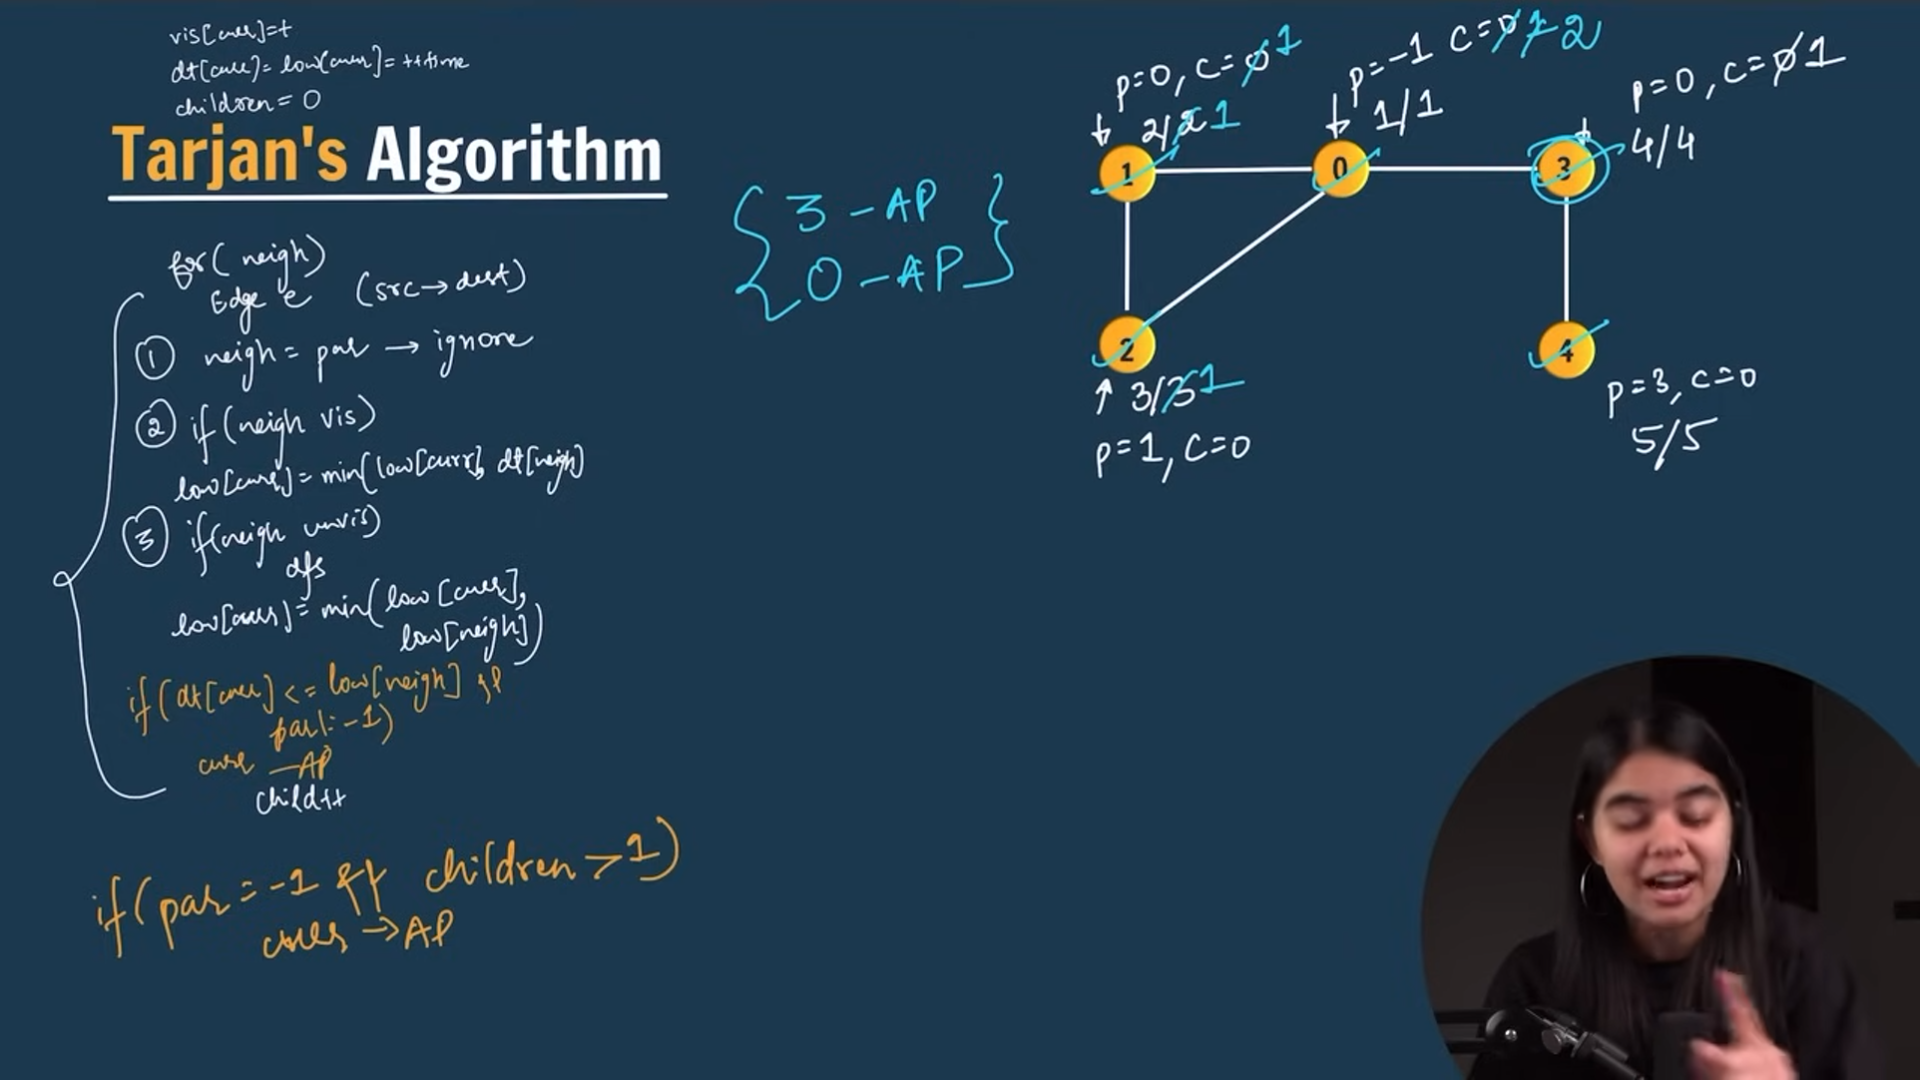 vis[curr]=t
dt[curr]= low[curr]= ++time
children = 0
Tarjan's Algorithm
for( neigh)
Edge e (src→dest)
① neigh = par → ignore
② if(neigh vis)
low[curr]= min(low[curr], dt[neigh]
③ if(neigh unvis)
dfs
low[curr]= min(low[curr],
low[neigh])
if(dt[curr] <= low[neigh] &&
par!=-1)
curr —AP
child++
if(par = -1 && children >1)
curr → AP
{ 3 - AP }
{ 0 - AP }
p=0, c=0 1
2/2 1
1
p=-1 c=0 1 2
1/1
0
p=0, c=0 1
4/4
3
2
3/3 1
p=1, c=0
4
p=3, c=0
5/5